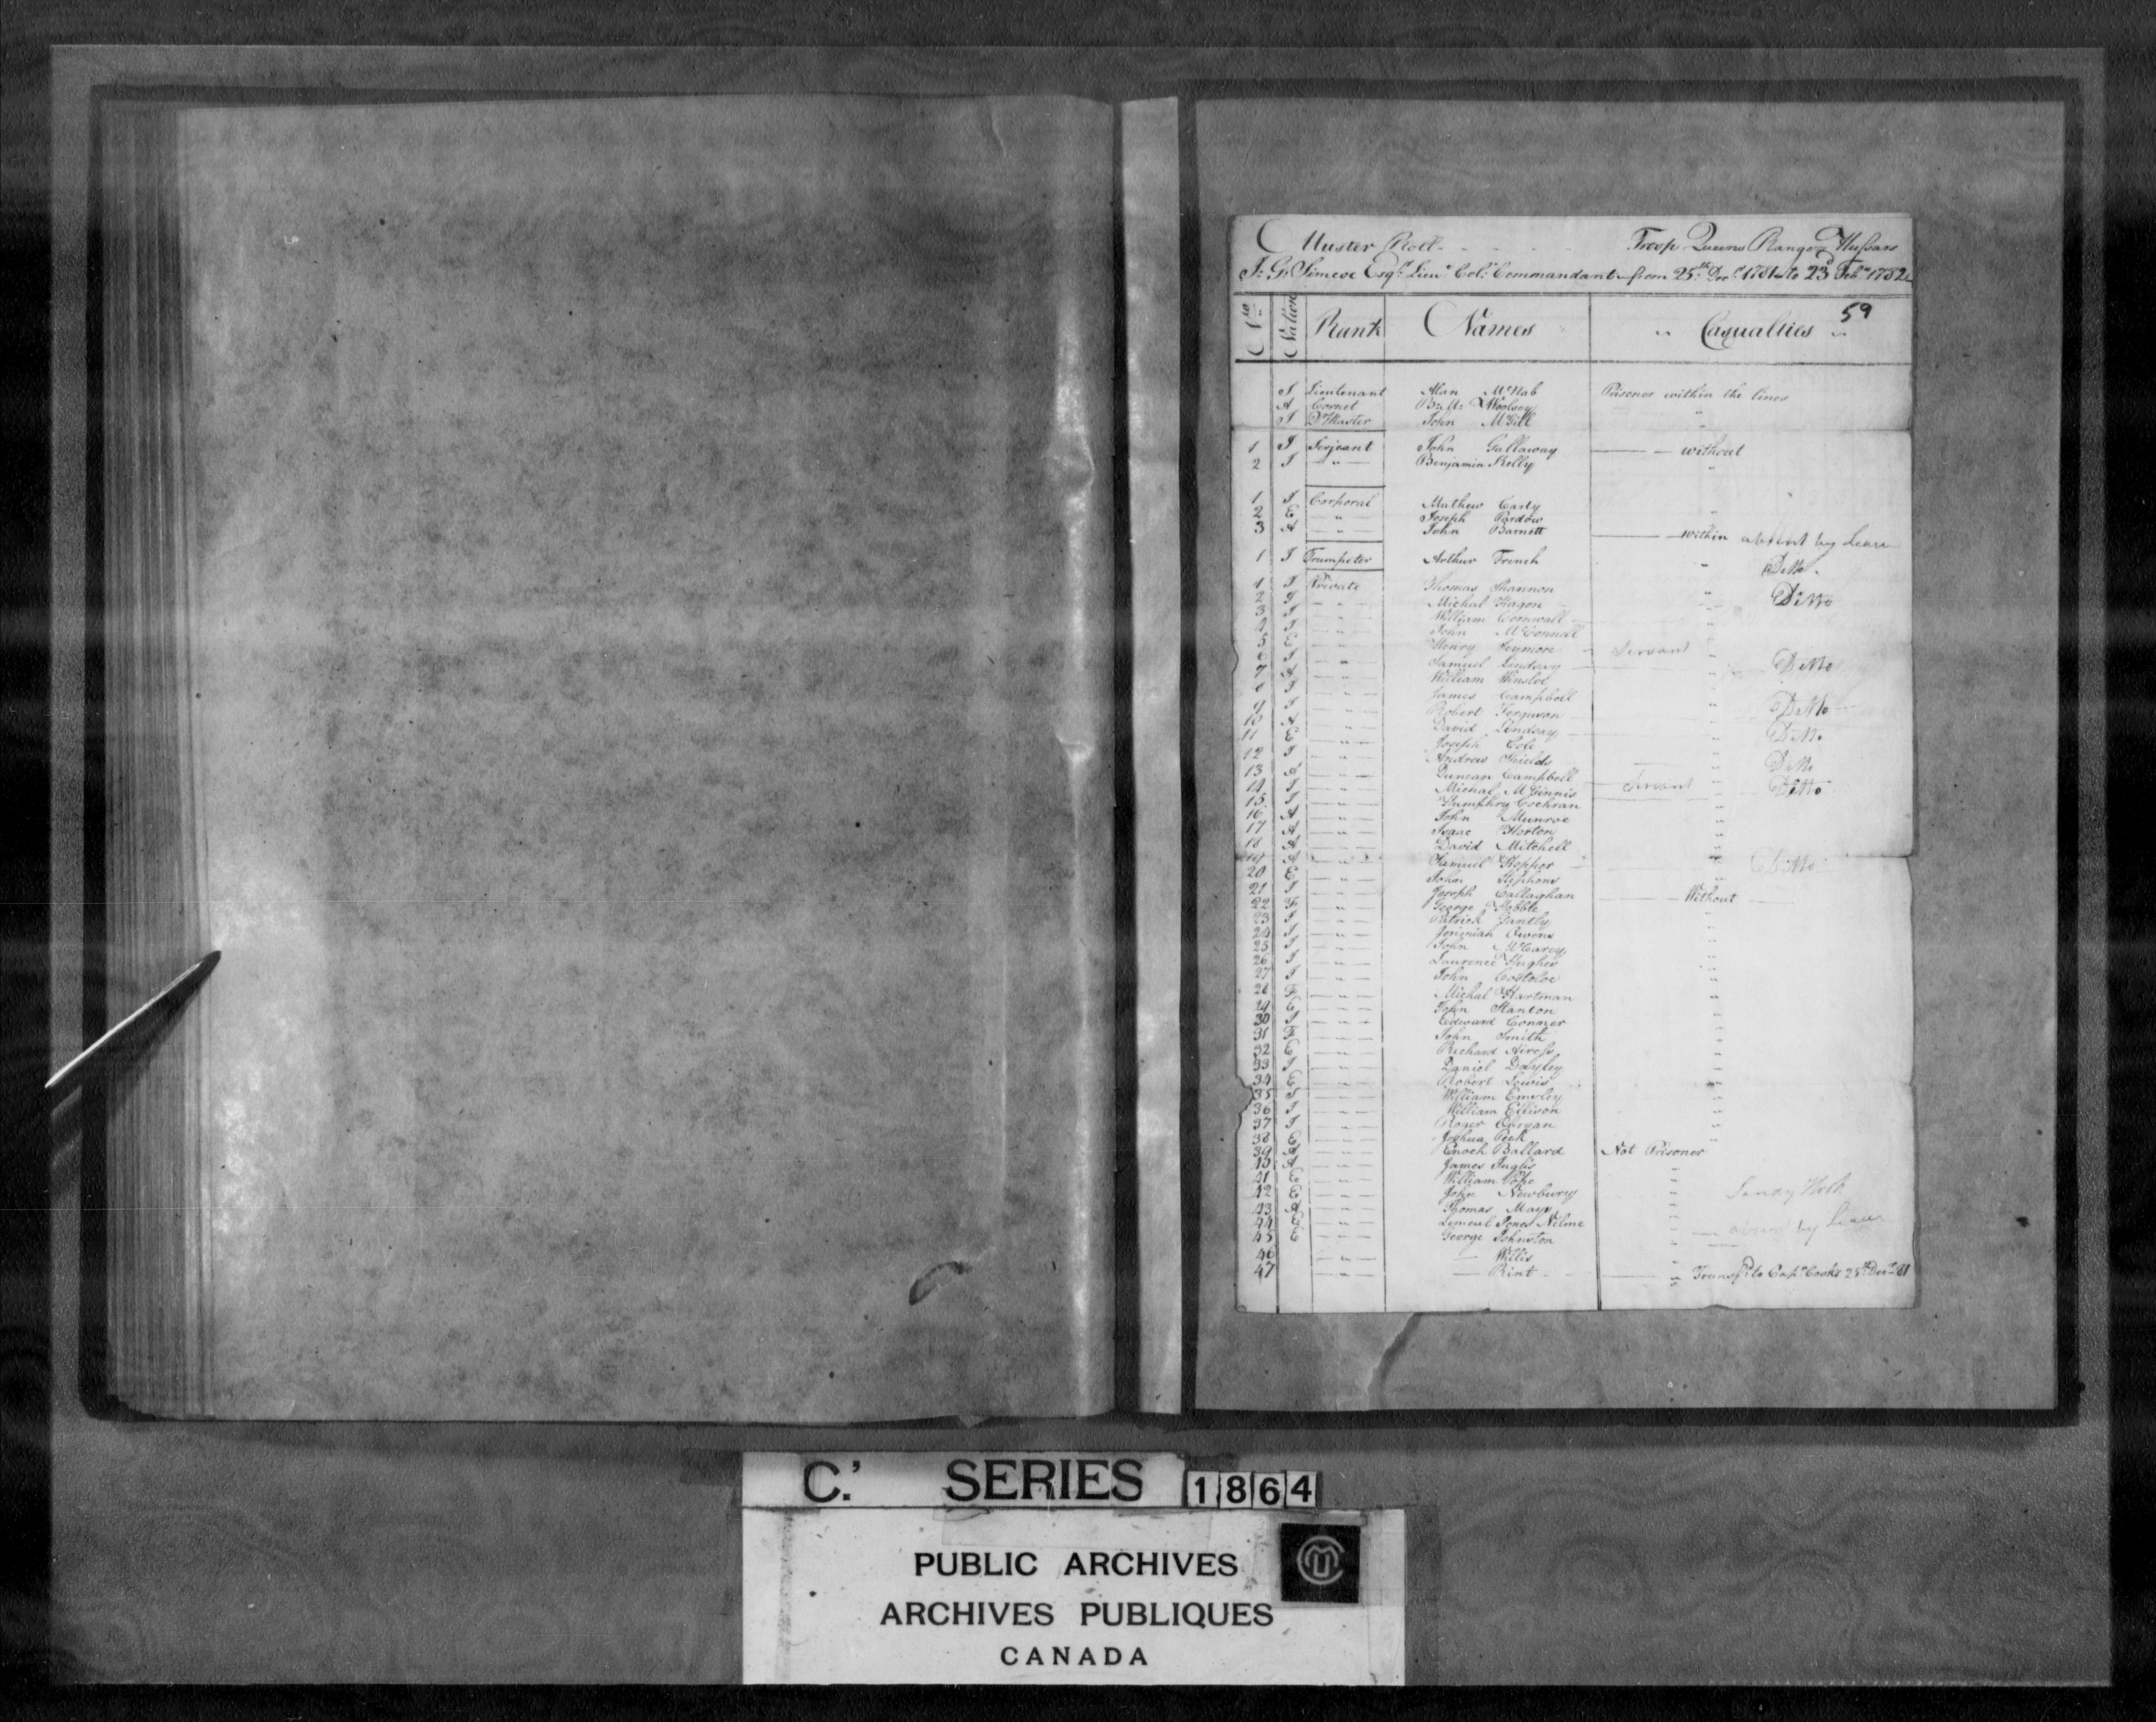 Muster Roll - - - - - Troop Queens Rangers Hussars
J: G: Simcoe Esqr. Lieut. Coll. Commandant - from 25th. Decr. 1781 - to 23d Feby. 1782
59
No. Nation Rank Names " Casualties "
S Lieutenant Alan McNab Prisoner within the lines
A Cornet B: M: Woolsey "
S Qr. Master John McGill "
1 I Serjeant John Gallaway — — without
2 I — " — Benjamin Kelly "
1 I Corporal Mathew Carty "
2 E — " — Joseph Pardow "
3 A — " — John Barnett — — within absent by Leave
1 I Trumpeter Arthur French " Ditto
1 I Private Thomas Shannon " Ditto
2 I — " — Michal Hagon "
3 I — " — William Cornwall "
4 I — " — John McConnall "
5 E — " — Henry Seymore Servant "
6 I — " — Samuel Lindsay " Ditto
7 A — " — William Winsloe "
8 I — " — James Campbell "
9 I — " — Robert Ferguson " Ditto
10 A — " — David Lindsay " Ditto
11 E — " — Joseph Cole "
12 I — " — Andrew Shields " Ditto
13 A — " — Duncan Campbell " Ditto
14 I — " — Michal McGinnis Servant "
15 I — " — Humphry Cochran "
16 A — " — John Munroe "
17 A — " — Isaac Horton "
18 A — " — David Mitchell "
19 A — " — Samuel Hopper " Ditto
20 E — " — John Stephens "
21 I — " — Joseph Callaghan — — Without
22 F — " — George Hobble "
23 I — " — Patrick Gantly "
24 I — " — Jeremiah Owens "
25 I — " — John McCarey "
26 I — " — Laurence Hughes "
27 I — " — John Costoloe "
28 F — " — Michal Hartman "
29 E — " — John Stanton "
30 I — " — Edward Conner "
31 F — " — John Smith "
32 E — " — Richard "
33 I — " — Daniel Dayley "
34 E — " — Robert Lewis "
35 S — " — William Emsley "
36 I — " — William Ellison "
37 I — " — Roger "
38 E — " — Joshua Peek "
39 A — " — Enoch Ballard Not Prisoner
40 A — " — James Inglis "
41 E — " — William Pope "
42 E — " — John Newbury " Sandy Hook
43 A — " — Thomas Mays "
44 E — " — Lemeul Jones Nilme " — absent by Leave
45 E — " — George Johnston "
46 — " — — Willis "
47 — " — — Rint - " Transfd. to Capn. Cooks 25th. Decr. 81
C.' SERIES 1864
PUBLIC ARCHIVES
ARCHIVES PUBLIQUES
CANADA